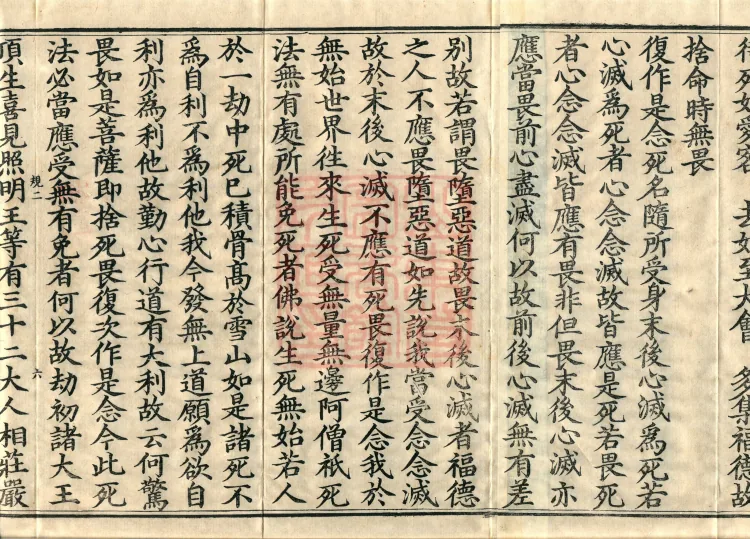 捨命時無畏
復作是念死名隨所受身末後心滅為死若
心滅為死者心念念滅故皆應是死若畏死
者心念念滅皆應有畏非但畏末後心滅亦
應當畏前心盡滅何以故前後心滅無有差
別故若謂畏墮惡道故畏末後心滅者福德
之人不應畏墮惡道如先說我當受念念滅
故於末後心滅不應有死畏復作是念我於
無始世界往來生死受無量無邊阿僧祇死
法無有處所能免死者佛說生死無始若人
於一劫中死已積骨高於雪山如是諸死不
為自利不為利他我今發無上道願為欲自
利亦為利他故勤心行道有大利故云何驚
畏如是菩薩即捨死畏復次作是念今此死
法必當應受無有免者何以故劫初諸大王
規二
六
頂生喜見照明王等有三十二大人相莊嚴